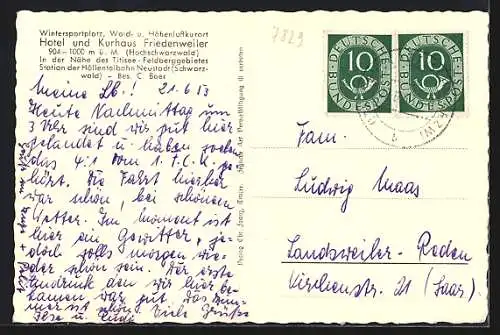 7829
Wintersportplatz, Wald- u. Höhenluftkurort
Hotel und Kurhaus Friedenweiler
904-1000 m ü. M. (Hochschwarzwald)
In der Nähe des Titisee - Feldberggebietes
Station der Höllentalbahn Neustadt (Schwarz-
wald) - Bes. C. Baer
Meine Lb.! 21.6.53
Heute Nachmittag um
3 Uhr sind wir gut hier
gelandet u. haben soeben
das 4:1 vom 1. F.C.K. ge-
hört. Die Fahrt hierher
war schön, bei schönem
Wetter. Im Moment ist
hier ein Gewitter, je-
doch solls morgen wie-
der schön sein. Der erste
Eindruck den wir hier be-
kamen war gut, das Zim-
mer ist schön. Viele Grüße
DEUTSCHE BUNDESPOST
10
DEUTSCHE BUNDESPOST
10
Fam.
Ludwig Maas
Landsweiler-Reden
Kirchenstr. 21 (Saar)